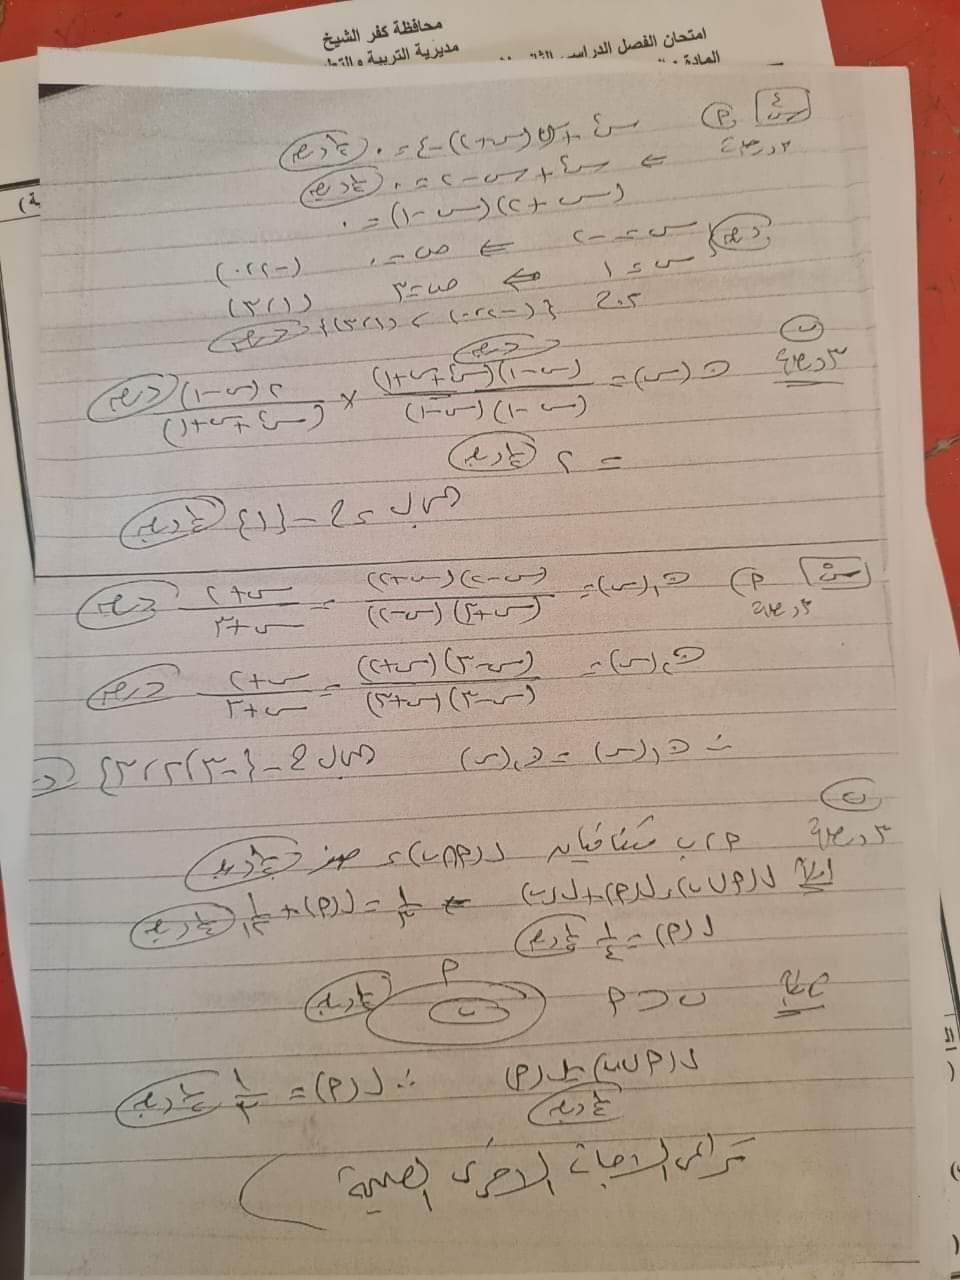 محافظة كفر الشيخ
مديرية التربية والتعليم
امتحان الفصل الدراسي
المادة
س٤
(P) س٢ + (س+٢) - ٤ = ٠ (½ درجة)
⇐ س٢ + س - ٢ = ٠ (½ درجة)
(س + ٢)(س - ١) = ٠
(درجة) س = -٢ ⇐ ص = ٠ (-٢، ٠)
س = ١ ⇐ ص = ٣ (١، ٣)
م.ح = {(-٢، ٠)، (١، ٣)} (درجة)
(ب) ٣ درجات
ن(س) = (س - ١)(س٢ + س + ١) / (س - ١)(س - ١) × ٢(س - ١) / (س٢ + س + ١) (درجة)
= ٢ (½ درجة)
مجال = ح - {١} (½ درجة)
س٥ (P) ٣ درجات
ن١(س) = (س-٢)(س+٢) / (س+٣)(س-٢) = س+٢ / س+٣ (درجة)
ن٢(س) = (س-٣)(س+٢) / (س-٣)(س+٣) = س+٢ / س+٣ (درجة)
∴ ن١(س) = ن٢(س) مجال ح - {-٣، ٢، ٣}
(ب) ٣ درجات
P، ب متنافيان ل(P∩ب) = صفر (½ درجة)
ل(P∪ب) = ل(P) + ل(ب) ⇐ ١/٣ = ل(P) + ١/١٢ (½ درجة)
ل(P) = ١/٤ (½ درجة)
ب ⊂ P
P ب (½ درجة)
ل(P∪ب) = ل(P) ∴ ل(P) = ١/٣ (½ درجة)
(½ درجة)
تراعى الاجابات الأخرى الصحيحة